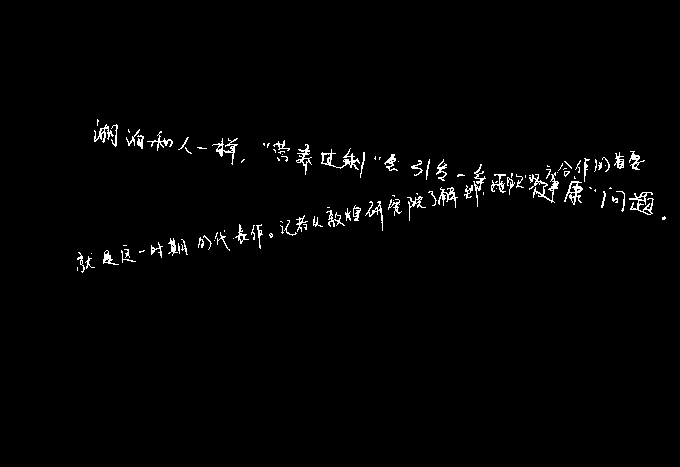 湖泊和人一样，“营养过剩”会引发一系列 康”问题.
就是这一时期的代表作。记者从敦煌研究院了解到, 合作的首要